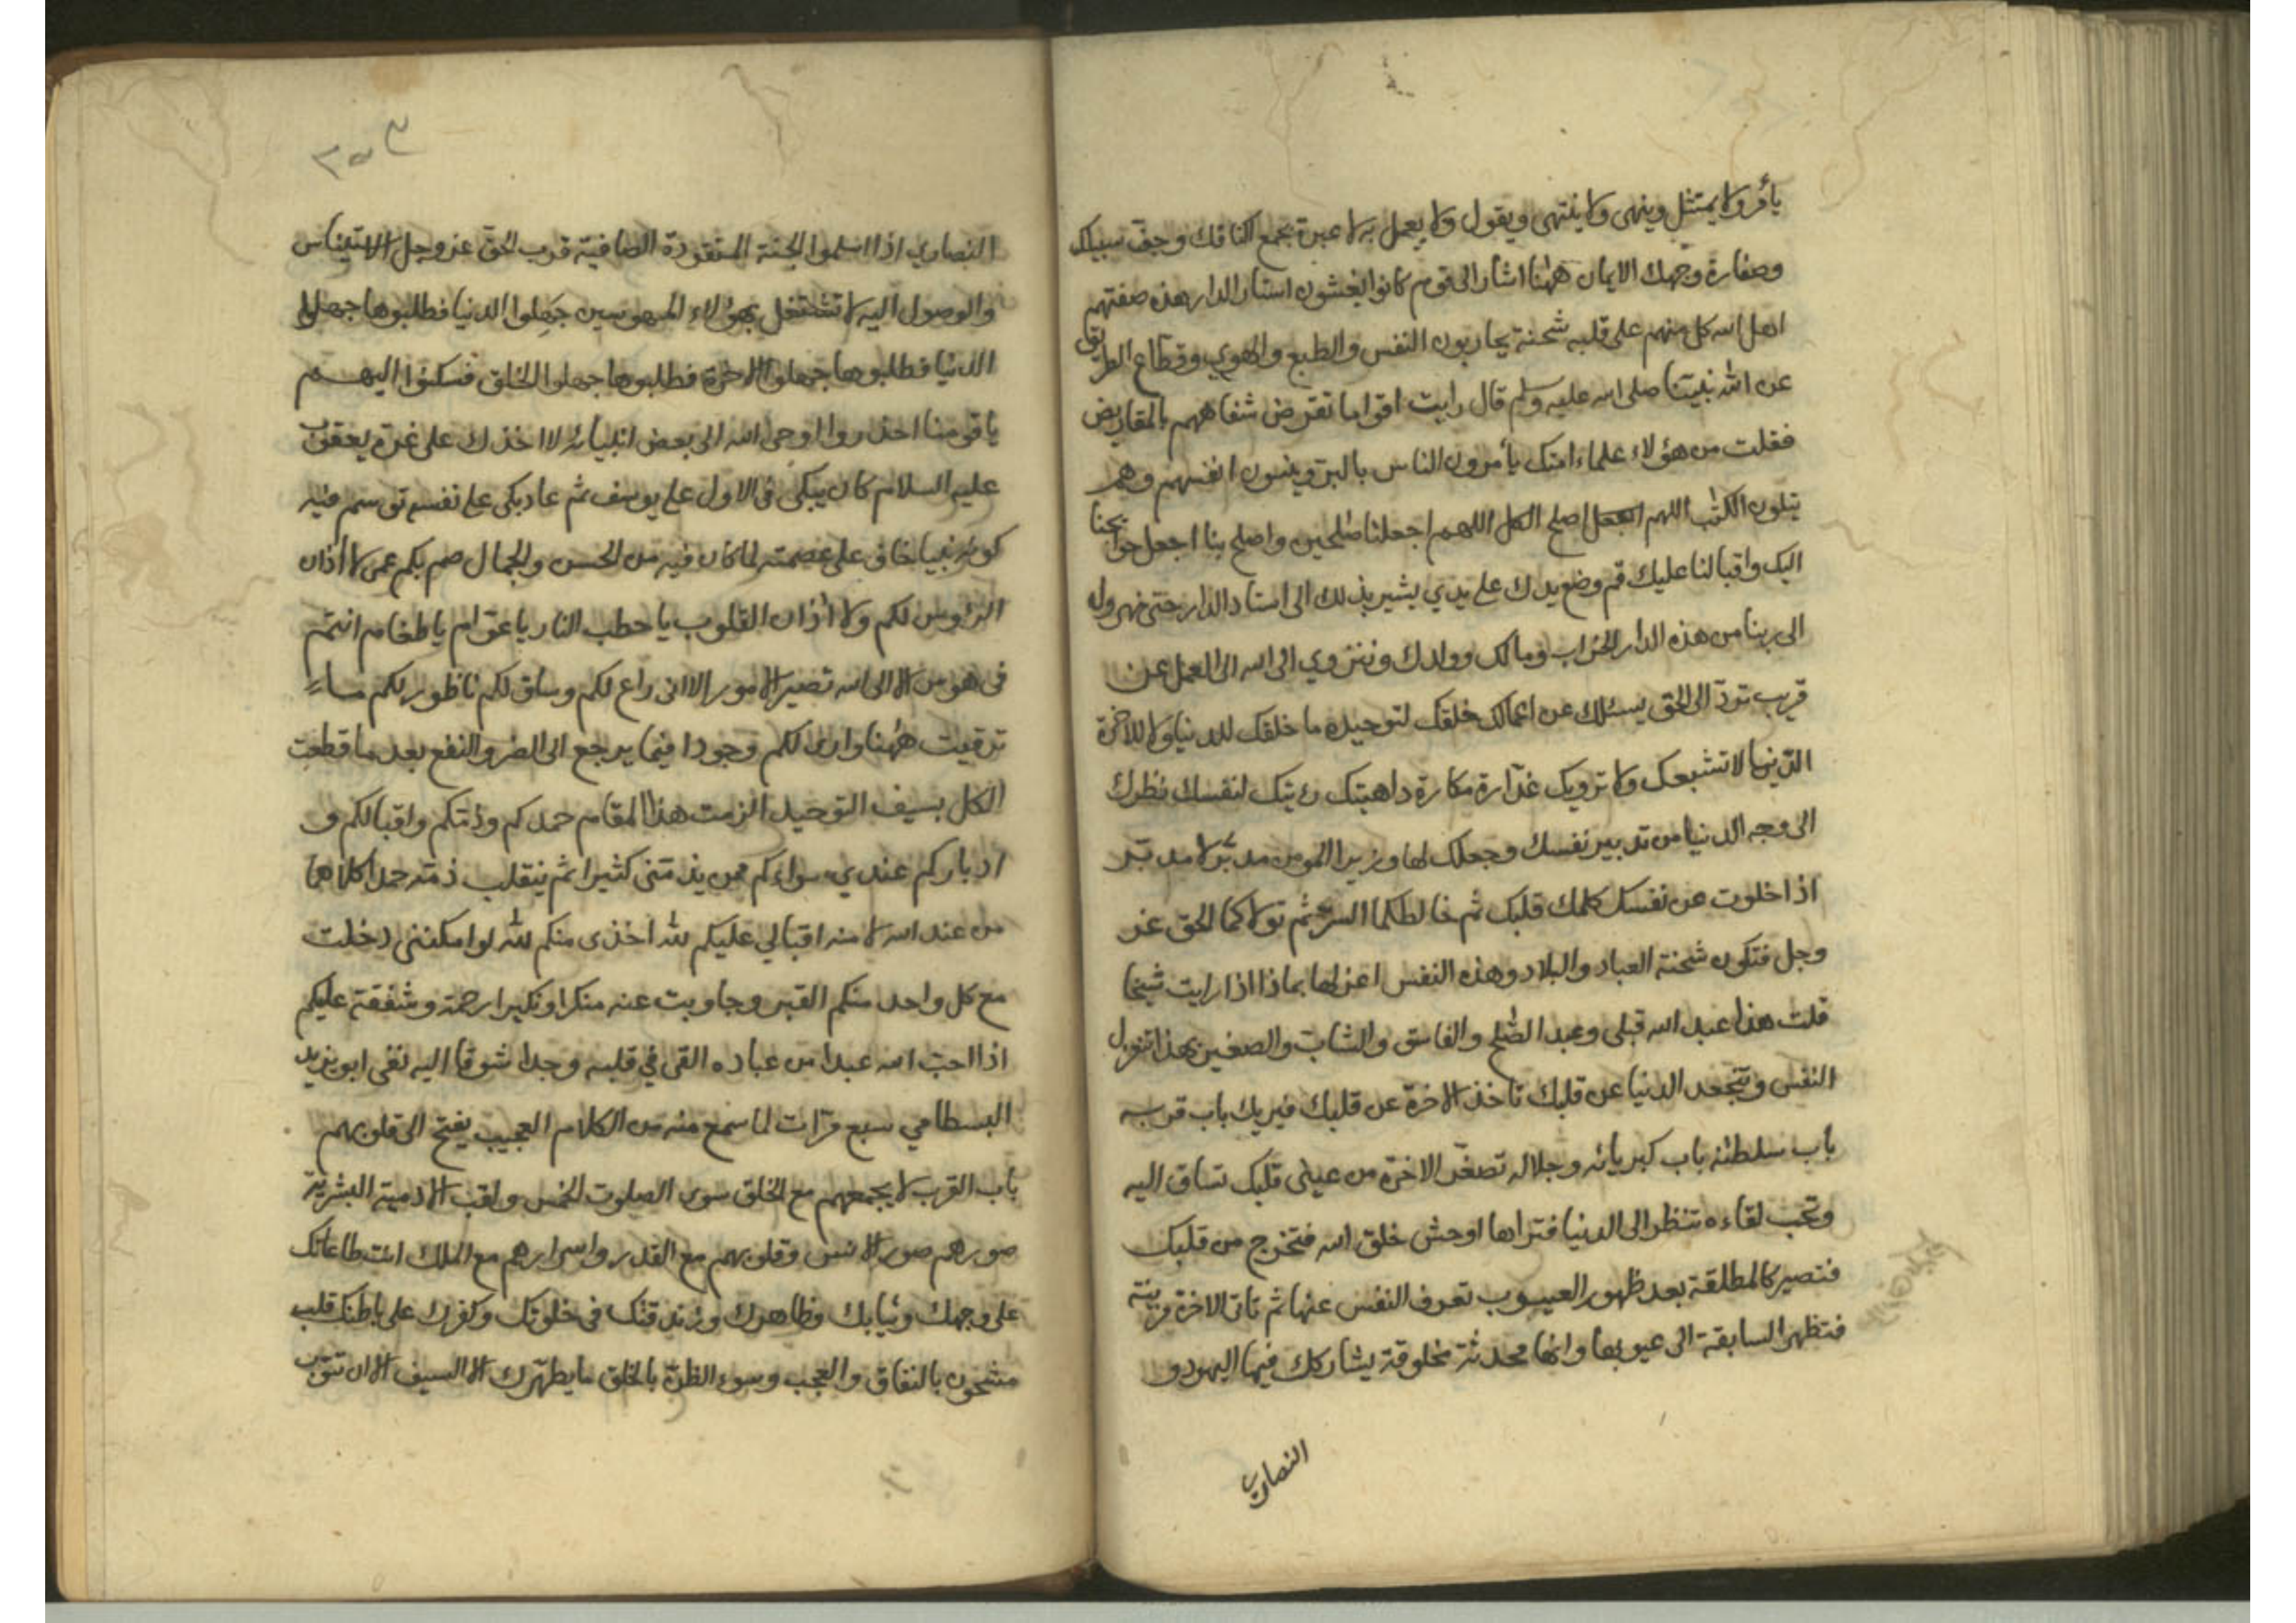 يأمر ولا يمتثل وينهى ولا ينتهى ويقول ولا يعمل به لا عبرة بجمع اكتافك وجف سبيلك
وصفارة وجهك الايمان ههنا اشار الى قوم كانوا يغشون استاد الدار هذه صفتهم
اهل الله كل منهم على قلبه شحنة يحاربون النفس والطبع والهوى وقطاع الطريق
عن الله نبينا صلى الله عليه وسلم قال رايت اقواما تقرض شفاههم بالمقاريض
فقلت من هؤلاء علماء امتك يأمرون الناس بالبر وينسون انفسهم وهم
يتلون الكتب اللهم اصلح الكل اللهم اجعلنا صلحين واصلح بنا اجعل حوائجنا
اليك واقبالنا عليك قم وضع يدك على يدي يشير بذلك الى استاد الدار حتى نهرول
الى ربنا من هذه الدار الخراب ومالك وولدك وننزوي الى الله الى العمل عن
قريب تود الى الحق يسئلك عن اعمالك خلقك لتوحيده ما خلقك للدنيا ولا للاخرة
الدنيا لا تشبعك ولا ترويك غدارة مكارة داهيتك رئيتك لنفسك نظرك
الى وجه الدنيا من تدبير نفسك وجعلك لها وزيرا المومن مدبر لا مدبر
اذا خلوت عن نفسك كلمك قلبك ثم خالطكما السر ثم تولاكما الحق عز
وجل فتكون شحنة العباد والبلاد وهذه النفس اعزلها بماذا اذا رايت شيخا
قلت هذا عبد الله قبلى وعبد الصلح والفاسق والشاب والصغير بهذا تنزول
النفس وتتجعد الدنيا عن قلبك تاخذ الاخرة عن قلبك فيريك باب قربه
باب سلطنة باب كبريائه وجلاله تصغر الاخرة من عينى قلبك تساق اليه
وتحب لقاءه تنظر الى الدنيا فتراها اوحش خلق الله فتخرج من قلبك
فتصير كالمطلقة بعد ظهور العيوب تعرف النفس عنها ثم تاتى الاخرة مزينة
فتظهر السابقة الى عيوبها وانها محدثة مخلوقة يشاركك فيها اليهود و
النصارى
النصارى اذا اسلموا الجنة المتقودة الصافية قرب الحق عز وجل الاستيناس
والوصول اليه لا تشتغل بهؤلاء المهوسين جهلوا الدنيا فطلبوها جهلوا
الدنيا فطلبوها جهلوا الاخرة فطلبوها جهلوا الخلق فسكنوا اليهم
يا قومنا احذروا اوحى الله الى بعض انبيائه لا اخذك على غرة يعقوب
عليه السلام كان يبكى فى الاول على يوسف ثم عاد بكى على نفسه توسم فيه
كونه نبيا خاف على عصمته لما كان فيه من الحسن والجمال صم بكم عمى لا اذان
الرؤس لكم ولا اذان القلوب يا حطب النار يا عوام يا طغام انتم
فى هوس الا الى الله تصير الامور الا انى راع لكم وساق لكم ناظور لكم ما
ترقيت ههنا وارى لكم وجودا فيما يرجع الى الضر والنفع بعد ما قطعت
الكل بسيف التوحيد الزمت هذا المقام حمدكم وذمكم واقبالكم و
ادباركم عندي سواء كم ممن يذمتنى كثيرا ثم ينقلب ذمه حمدا كلاهما
من عند الله لا منه اقبالي عليكم لله اخذى منكم لله لو امكننى دخلت
مع كل واحد منكم القبر وجاوبت عنه منكرا ونكيرا رحمة وشفقة عليكم
اذا احب الله عبدا من عباده القى في قلبه وجدا شوقا اليه نفى ابو يزيد
البسطامي سبع مرات لما سمع منه من الكلام العجيب يفتح الى قلوبهم
باب القرب لا يجمعهم مع الخلق سوى الصلوت الخمس ولقب الادمية البشرية
صورهم صور الانس وقلوبهم مع القدر واسرارهم مع الملك انت طاعاتك
على وجهك وثيابك وظاهرك وزندقتك فى خلوتك وكفرك على باطنك قلب
مشحون بالنفاق والعجب وسوء الظن بالخلق ما يطهرك الا السيف الا ان تتوب